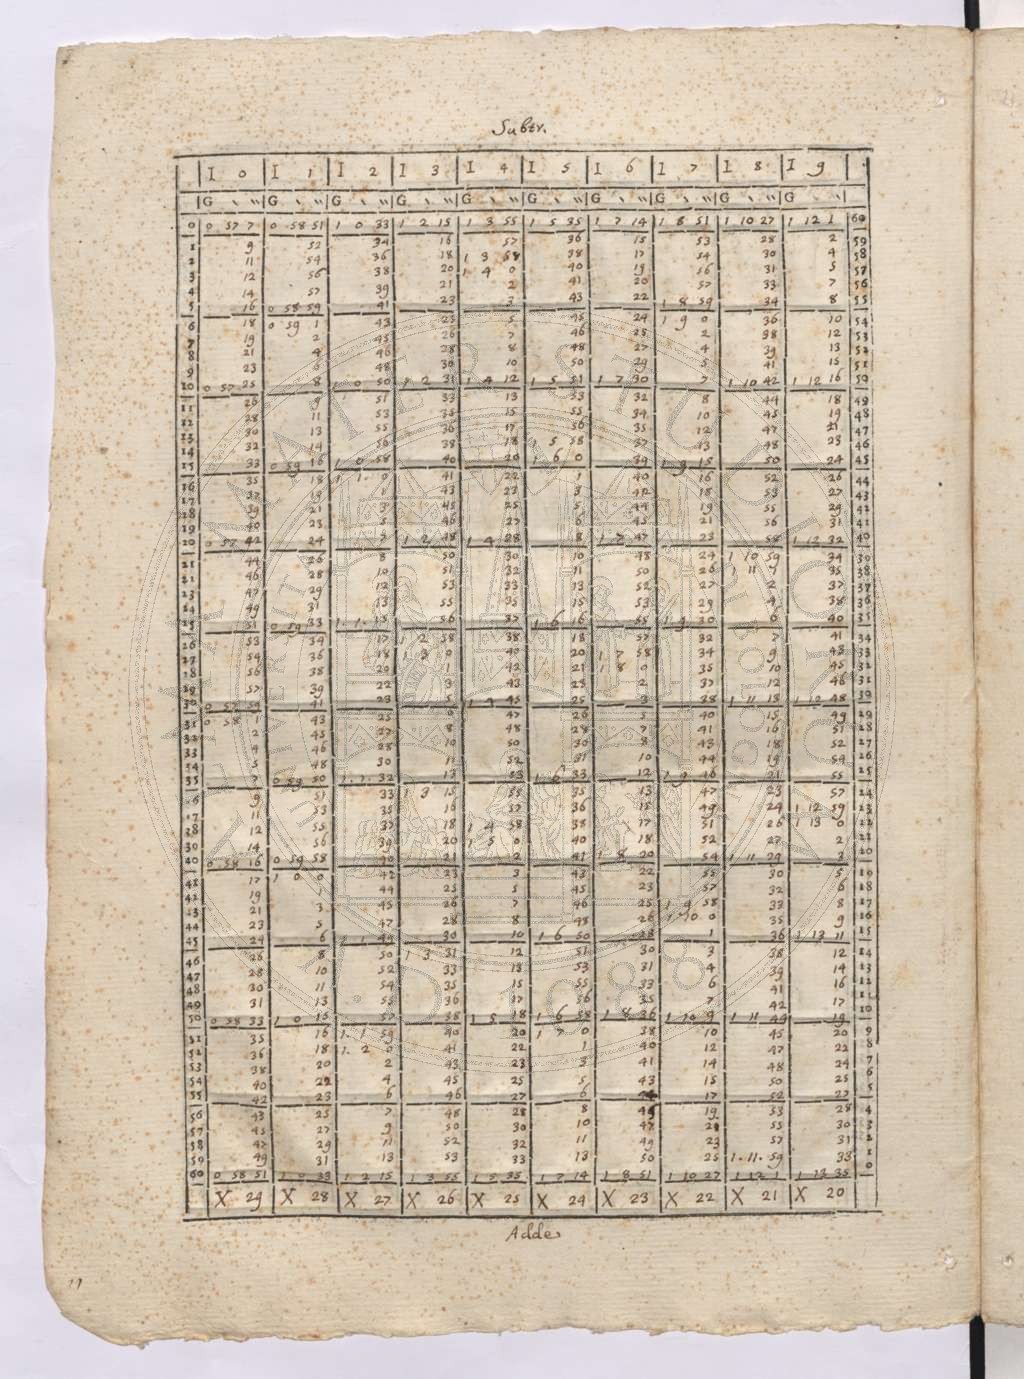 Subtr.
I 0 I 1 I 2 I 3 I 4 I 5 I 6 I 7 I 8 I 9
G ‵ ‶ G ‵ ‶ G ‵ ‶ G ‵ ‶ G ‵ ‶ G ‵ ‶ G ‵ ‶ G ‵ ‶ G ‵ ‶ G ‵ ‶
0 0 57 7 0 58 51 1 0 33 1 2 15 1 3 55 1 5 35 1 7 14 1 8 51 1 10 27 1 12 1 60
1 9 52 34 16 57 36 15 53 28 2 59
2 11 54 36 18 1 3 58 38 17 54 30 4 58
3 12 56 38 20 1 4 0 40 19 56 31 5 57
4 14 57 39 21 2 41 20 57 33 7 56
5 16 0 58 59 41 23 3 43 22 1 8 59 34 8 55
6 18 0 59 1 43 25 5 45 24 1 9 0 36 10 54
7 19 2 45 26 7 46 25 2 38 12 53
8 21 4 46 28 8 48 27 4 39 13 52
9 23 6 48 30 10 50 29 5 41 15 51
10 0 57 25 8 1 0 50 1 2 31 1 4 12 1 5 51 1 7 30 7 1 10 42 1 12 16 50
11 26 9 51 33 13 53 32 8 44 18 49
12 28 11 53 35 15 55 34 10 45 19 48
13 30 13 55 36 17 56 35 12 47 21 47
14 32 14 56 38 18 1 5 58 37 13 48 23 46
15 0 33 0 59 16 1 0 58 40 20 1 6 0 39 1 9 15 50 24 45
16 35 18 1 1 0 41 22 1 40 16 52 26 44
17 37 19 1 43 23 3 42 18 53 27 43
18 39 21 3 45 25 5 44 19 55 29 42
19 40 23 5 46 27 6 45 21 56 31 41
20 0 57 42 24 7 1 2 48 1 4 28 8 1 7 47 23 58 1 12 32 40
21 44 26 8 50 30 10 48 24 1 10 59 34 39
21 46 28 10 51 32 11 50 26 1 11 1 35 38
23 47 29 12 53 33 13 52 27 2 37 37
24 49 31 13 55 35 15 53 29 4 38 36
25 51 0 59 33 1 1 15 56 37 1 6 16 55 1 9 30 6 40 35
26 53 34 17 1 2 58 38 18 57 32 7 41 34
27 54 36 18 3 0 40 20 1 7 58 34 9 43 33
28 56 38 20 1 42 21 1 8 0 35 10 45 32
29 57 39 22 3 43 23 2 37 12 46 31
30 0 57 59 41 23 5 1 4 45 25 3 38 1 11 13 1 12 48 30
31 0 58 1 43 25 6 47 26 5 40 15 49 29
32 2 45 27 8 48 28 7 41 16 51 28
33 4 46 28 10 50 30 8 43 18 52 27
34 5 48 30 11 52 31 10 44 19 54 26
35 7 0 59 50 1 1 32 13 53 1 6 33 12 1 9 46 21 55 25
36 9 51 33 1 3 15 55 35 13 47 23 57 24
37 11 53 35 16 57 36 15 49 24 1 12 59 23
38 12 55 37 18 1 4 58 38 17 51 26 1 13 0 22
39 14 56 39 20 1 5 0 40 18 52 27 2 21
40 0 58 16 0 59 58 40 21 2 41 1 8 20 54 1 11 29 3 20
41 17 1 0 0 42 23 3 43 22 55 30 5 19
42 19 1 44 25 5 45 23 57 32 6 18
43 21 3 45 26 7 46 25 1 9 58 33 8 17
44 23 5 47 28 8 48 26 1 10 0 35 9 16
45 24 6 1 1 49 30 10 1 6 50 28 1 36 1 13 11 15
46 26 8 50 1 3 31 12 51 30 3 38 12 14
47 28 10 52 33 13 53 31 4 39 14 13
48 30 11 54 35 15 55 33 6 41 16 12
49 31 13 55 36 17 56 35 7 42 17 11
50 0 58 33 1 0 15 57 38 1 5 18 1 6 58 1 8 36 1 10 9 1 11 44 19 10
51 35 16 1 1 59 40 20 1 7 0 38 10 45 20 9
52 36 18 1 2 0 41 22 1 40 12 47 22 8
53 38 20 2 43 23 3 41 14 48 24 7
54 40 22 4 45 25 5 43 15 50 25 6
55 42 23 6 46 27 6 17 52 27 5
56 43 25 7 48 28 8 46 19 53 28 4
57 45 27 9 50 30 10 47 20 55 30 3
58 47 29 11 52 32 11 49 23 57 31 2
59 49 31 13 53 33 13 50 25 1 11 59 33 1
60 0 58 51 1 0 33 1 2 15 1 3 55 1 5 35 1 7 14 1 8 51 1 10 27 1 12 1 1 13 35 0
X 29 X 28 X 27 X 26 X 25 X 24 X 23 X 22 X 21 X 20
Adde